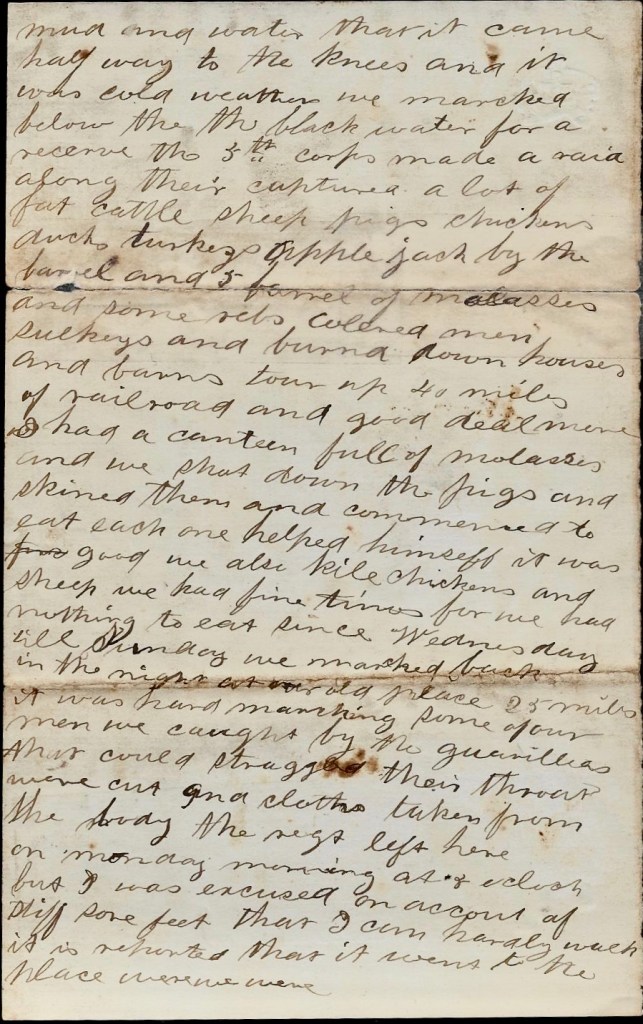 mud and water that it came
half way to the knees and it
was cold weather we marched
below the the black water for a
reserve the 5th corps made a raid
along their captured a lot of
fat cattle sheep pigs chickens
ducks turkeys apple jack by the
barrel and 5 barrel of molasses
and some rebs colered men
sulkeys and burnd down houses
and barns tour up 40 miles
of railroad and good deal more
I had a canteen full of molasses
and we shat down the pigs and
skined them and commenced to
eat each one helped himself it was
good we also kile chickens and
sheep we had fine times for we had
nothing to eat since Wednesday
till Sunday we marched back
in the night at our old place 25 miles
it was hard marching some of our
men we caught by the guarillias
that could straggled their throat
were cut and cloths taken from
the body the regt left here
on monday morning at 8 oclock
but I was excused on accout of
stiff sore feet that I can hardly walk
it is reported that it went to the
place were we were